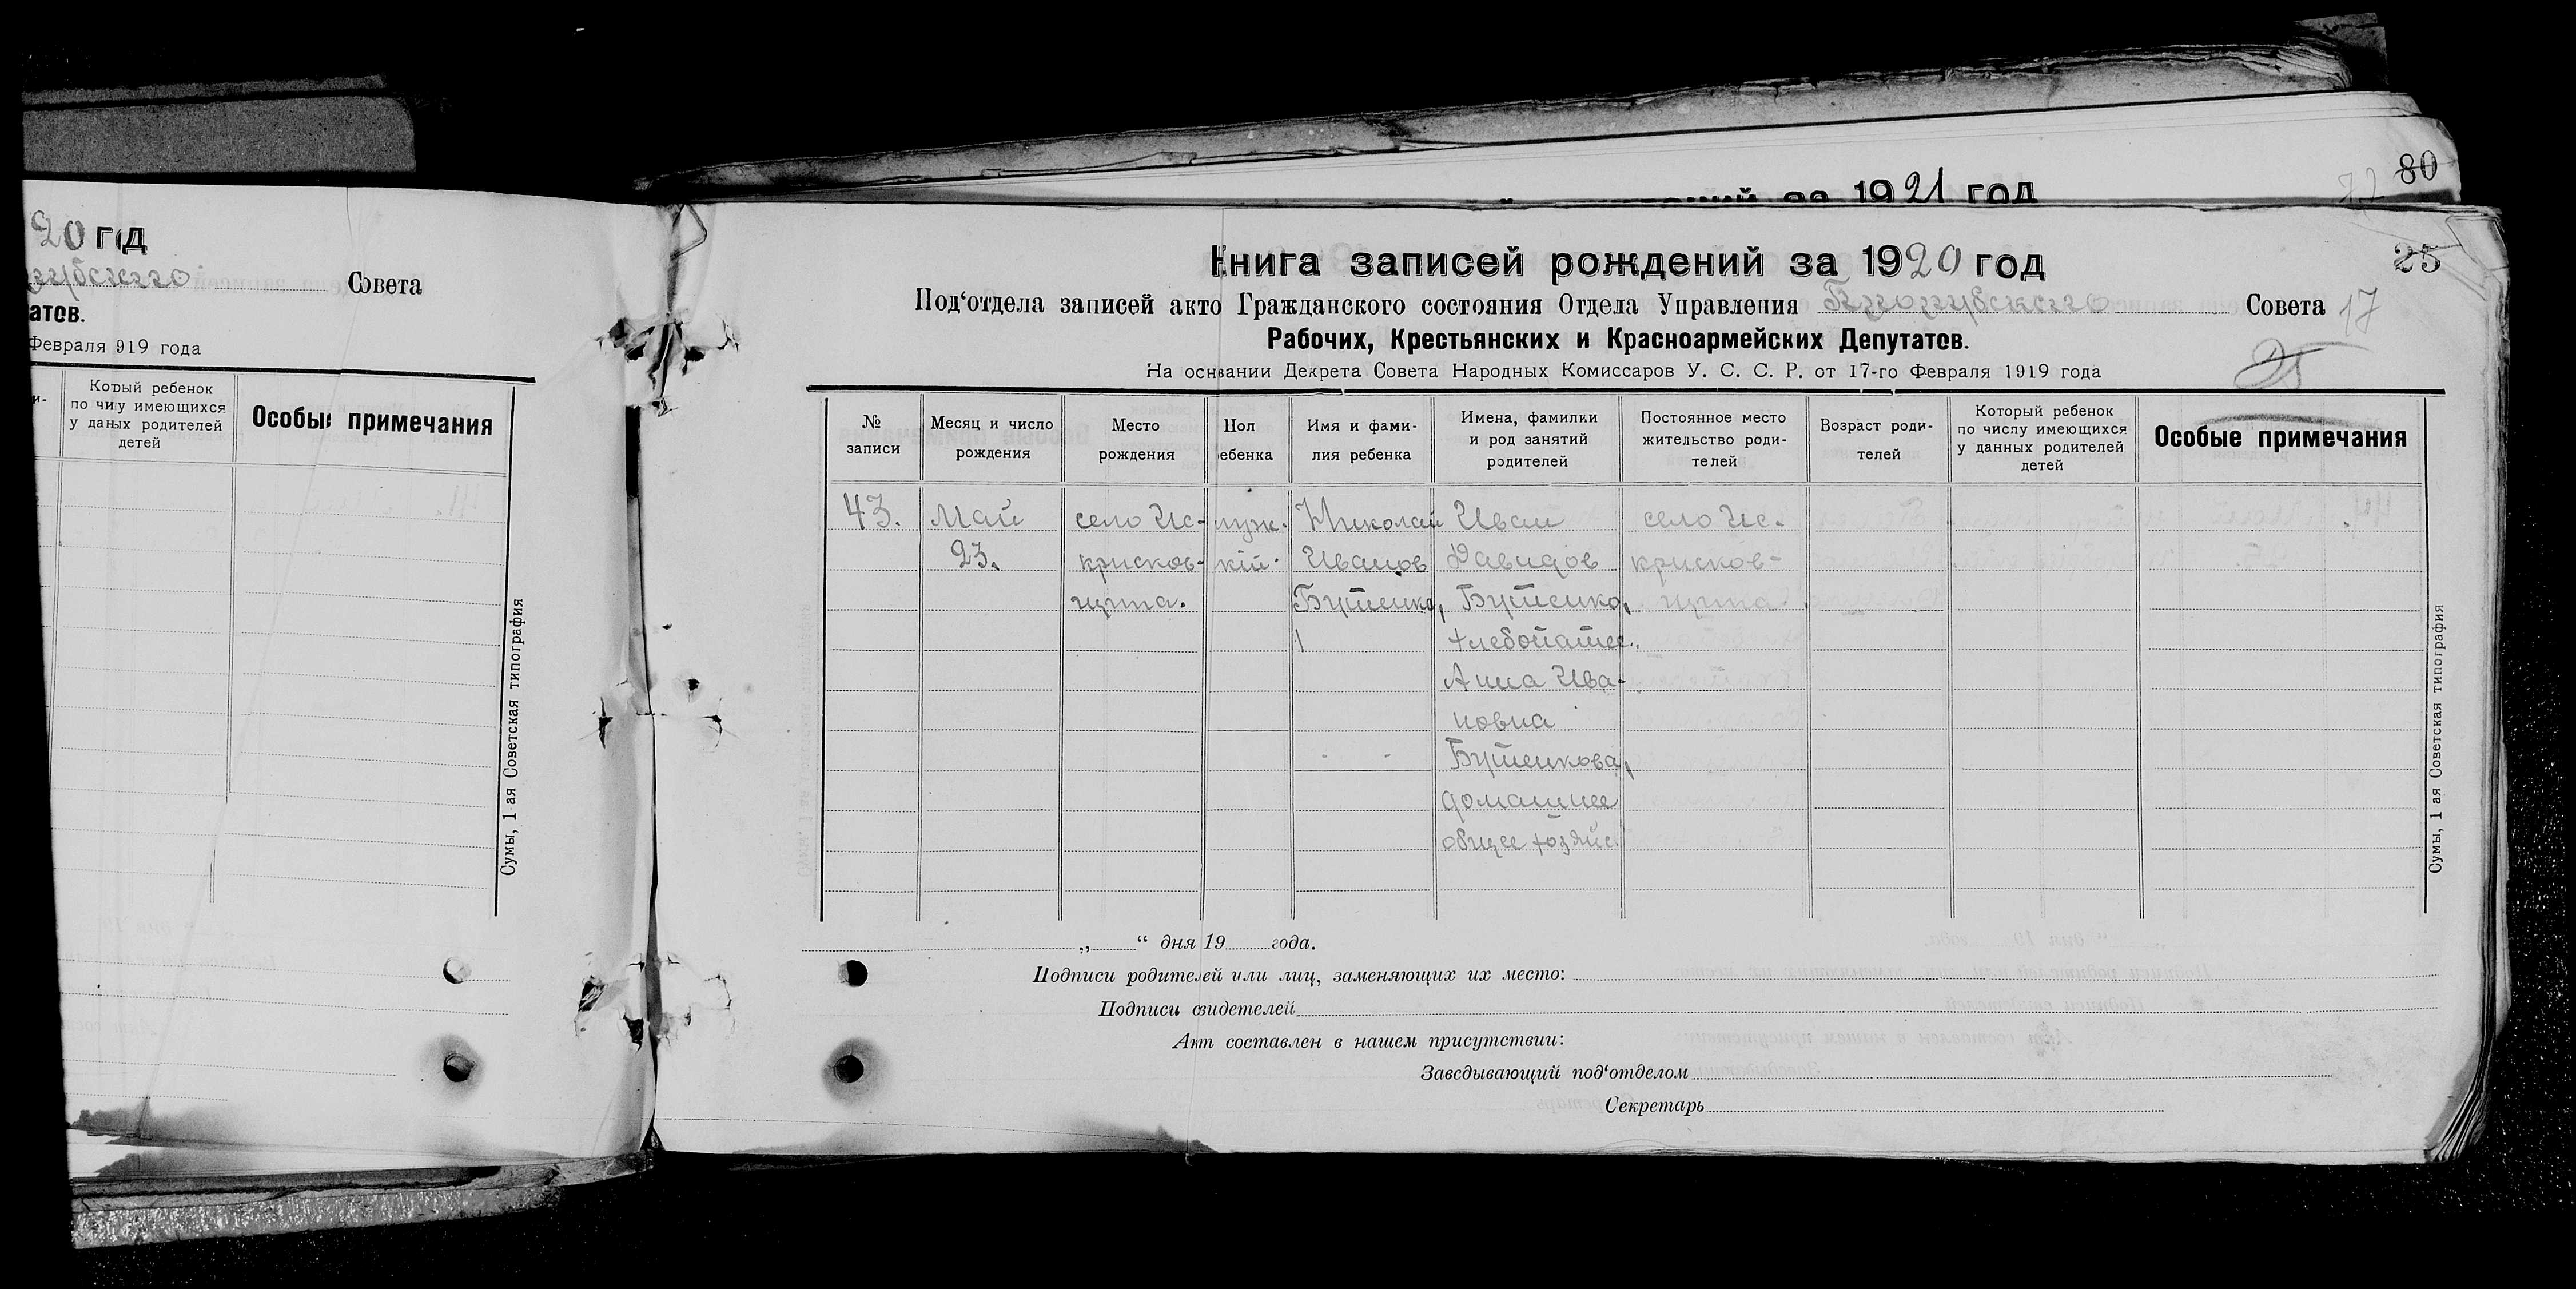 20 год
Совета
атов.
Февраля 919 года
Который ребенок
по числу имеющихся
у данных родителей
детей
Особые примечания
Сумы, 1 ая Советская типография
80
за 1921 год
Книга записей рождений за 1920 год
25
Под‘отдела записей акто Гражданского состояния Отдела Управления Совета
17
Рабочих, Крестьянских и Красноармейских Депутатов.
На основании Декрета Совета Народных Комиссаров У. С. С. Р. от 17-го Февраля 1919 года
25
№ записи
Месяц и число рождения
Место рождения
Пол ребенка
Имя и фами-
лия ребенка
Имена, фамилии
и род занятий
родителей
Постоянное место
жительство роди-
телей
Возраст роди-
телей
Который ребенок
по числу имеющихся
у данных родителей
детей
Особые примечания
43. Май село Ис- муж- Николай Иван село Ис-
23. крисков- кій. Иванов Давидов крисков-
щина. Бутенко, Бутенко, щина.
хлебопашец.
Анна Ива-
новна
Бутенкова,
домашнее
общее хозяйс.
„ “ дня 19 года.
Подписи родителей или лиц, заменяющих их место:
Подписи свидетелей
Акт составлен в нашем присутствии:
Заведывающий под‘отделом
Секретарь
Сумы, 1 ая Советская типография